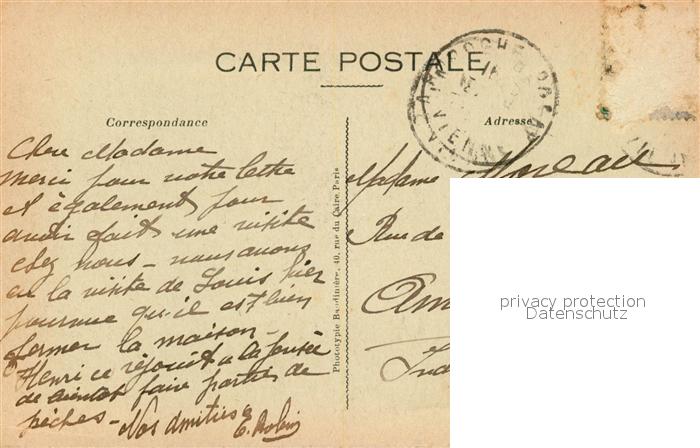 CARTE POSTALE
Correspondance
Adresse
Chère Madame
Merci pour votre lettre
et également pour
avoir fait une visite
chez nous - nous avons
eu la visite de Louis hier
pourvue qu'il est bien
fermer la maison -
Henri ce réjouit a la pensée
de faire partie de
pêches - Nos amitiés
E. Robin
Phototypie Baudinière, 40, rue du Caire, Paris
Madame Moreau
Rue de
Am
Ind
LA ROCHE
VIENNE
privacy protection
Datenschutz